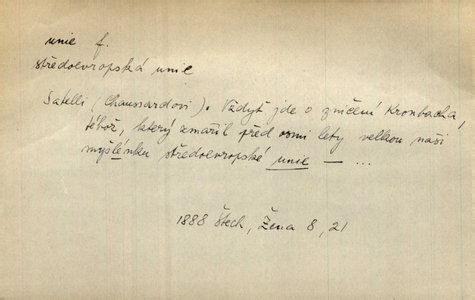 unie f.
středoevropská unie
Satelli (Chaussardovi). Vždyť jde o zničení Kronbacha,
téhož, který zmařil před osmi lety velkou naši
myšlénku středoevropské unie — ...
1888 Štech, Žena 8, 21